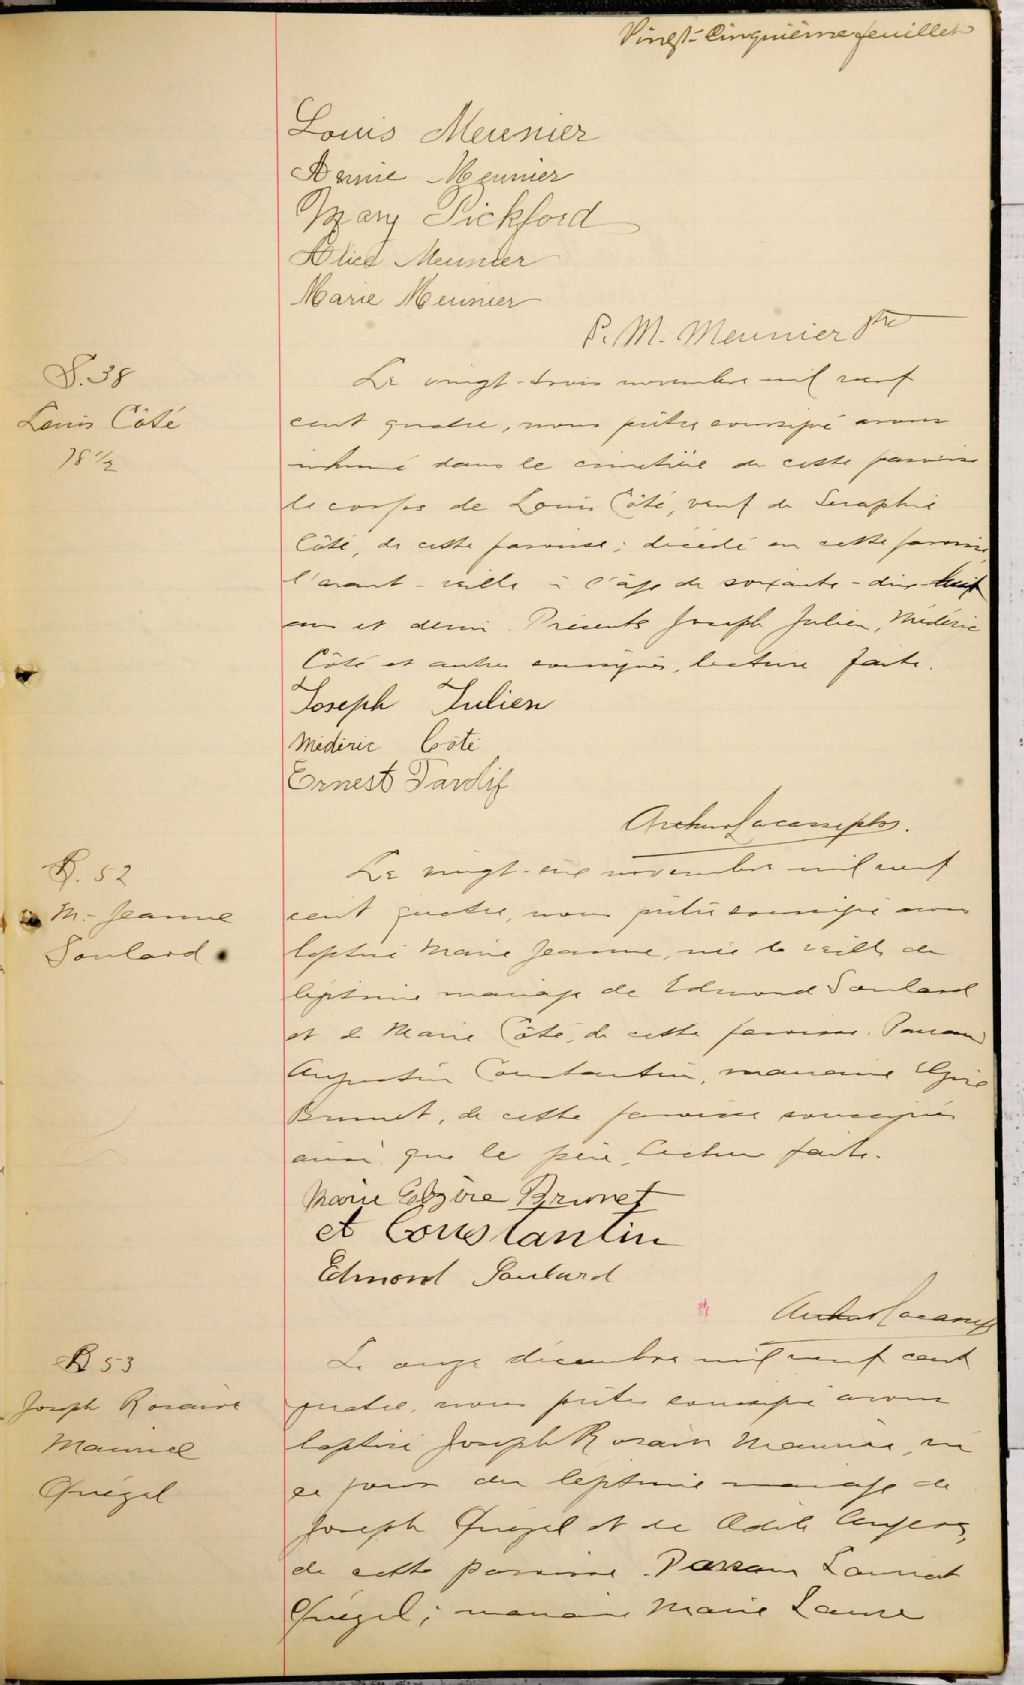 Vingt-Cinquième feuillet
Louis Meunier
Annie Meunier
Mary Pickford
Alice Meunier
Marie Meunier
P. M. Meunier ptre
S. 38
Louis Côté
78 1/2
Le vingt-trois novembre mil neuf
cent quatre, nous prêtre soussigné avons
inhumé dans le cimetière de cette paroisse
le corps de Louis Côté, veuf de Seraphie
Côté, de cette paroisse; décédé en cette paroisse
l'avant-veille à l'âge de soixante-dix huit
ans et demi. Présents Joseph Julien, Médéric
Côté et autres soussignés, lecture faite.
Joseph Julien
Médéric Côté
Ernest Tardif
Arthur Lacasse ptre.
B. 52
M.-Jeanne
Soulard
Le vingt-six novembre mil neuf
cent quatre, nous prêtre soussigné avons
baptisé Marie Jeanne, née la veille du
légitime mariage de Edmond Soulard
et de Marie Côté, de cette paroisse. Parrain
Augustin Constantin, marraine
Brunet, de cette paroisse soussignés
ainsi que le père, lecture faite.
Marie Brunet
et Constantin
Edmond Soulard
Arthur Lacasse
B 53
Joseph Rosaire
Maurice
Quézel
Le onze décembre mil neuf cent
quatre, nous prêtre soussigné avons
baptisé Joseph Rosaire Maurice, né
ce jour du légitime mariage de
Joseph Quézel et de Odile Angers,
de cette paroisse. Parrain Lauréat
Quézel; marraine Marie Laure